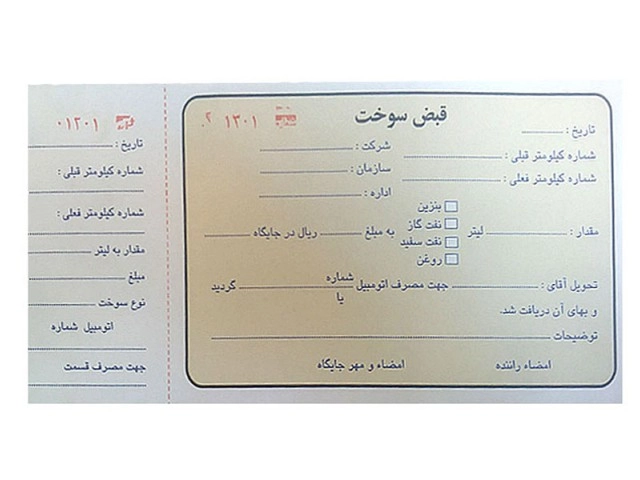 قبض سوخت
۱۳۰۱
تاریخ :
شماره کیلومتر قبلی :
شماره کیلومتر فعلی :
شرکت :
سازمان :
اداره :
مقدار : لیتر
بنزین
نفت گاز
نفت سفید
روغن
به مبلغ ریال در جایگاه
تحویل آقای : جهت مصرف اتومبیل شماره یا گردید
و بهای آن دریافت شد.
توضیحات
امضاء راننده امضاء و مهر جایگاه
۰۱۲۰۱
تاریخ :
شماره کیلومتر قبلی :
شماره کیلومتر فعلی :
مقدار به لیتر
مبلغ
نوع سوخت
اتومبیل شماره
جهت مصرف قسمت